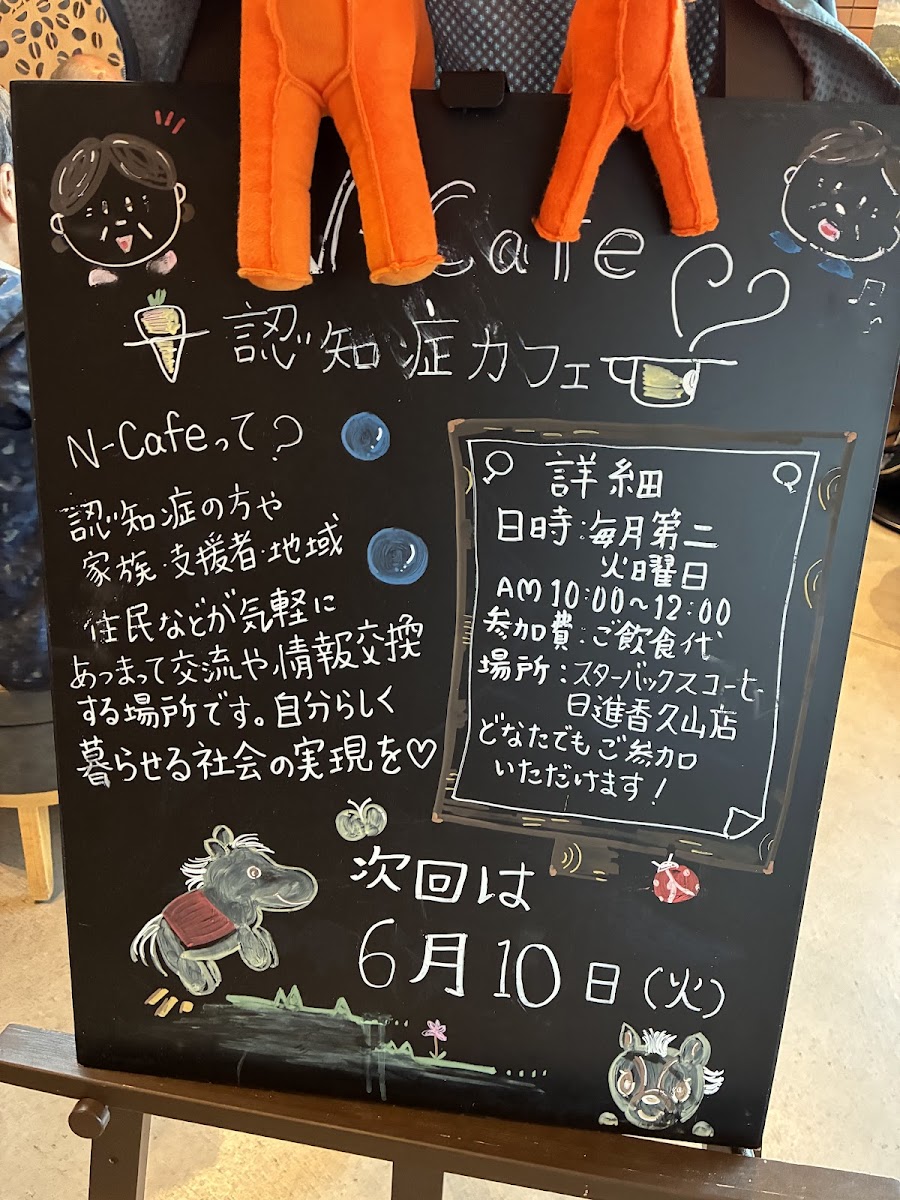 N-Cafe
認知症カフェ
N-Cafeって?
認知症の方や
家族・支援者・地域
住民などが気軽に
あつまって交流や情報交換
する場所です。自分らしく
暮らせる社会の実現を♡
詳細
日時:毎月第二
火曜日
AM10:00~12:00
参加費:ご飲食代
場所:スターバックスコーヒー
日進香久山店
どなたでもご参加
いただけます!
次回は
6月10日(火)